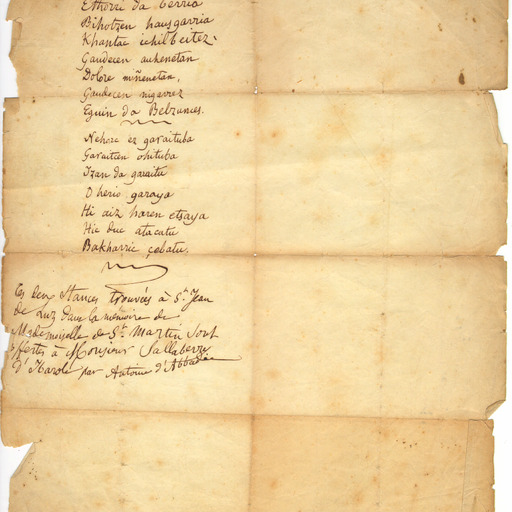 Ethorri da berria
Bihotzen hausgarria
Khantac ichil beitez.
Gauden auhenetan
Dolore miñenetan,
Gaudecen nigarrez
Eguin da Belzunces.
Nehorc ez garaituba
Garaitcen ohituba
Izan da garaitu
O herio garaya
Hi aiz haren etsaya
Hic duc atacatu
Bakharric cebatu.
Ces deux Stances trouvées à St. Jean
de Luz dans la mémoire de
Mademoiselle de St. Martin sont
offertes à Monsieur Sallaberry
d'Ibarole par Antoine d'Abbadie